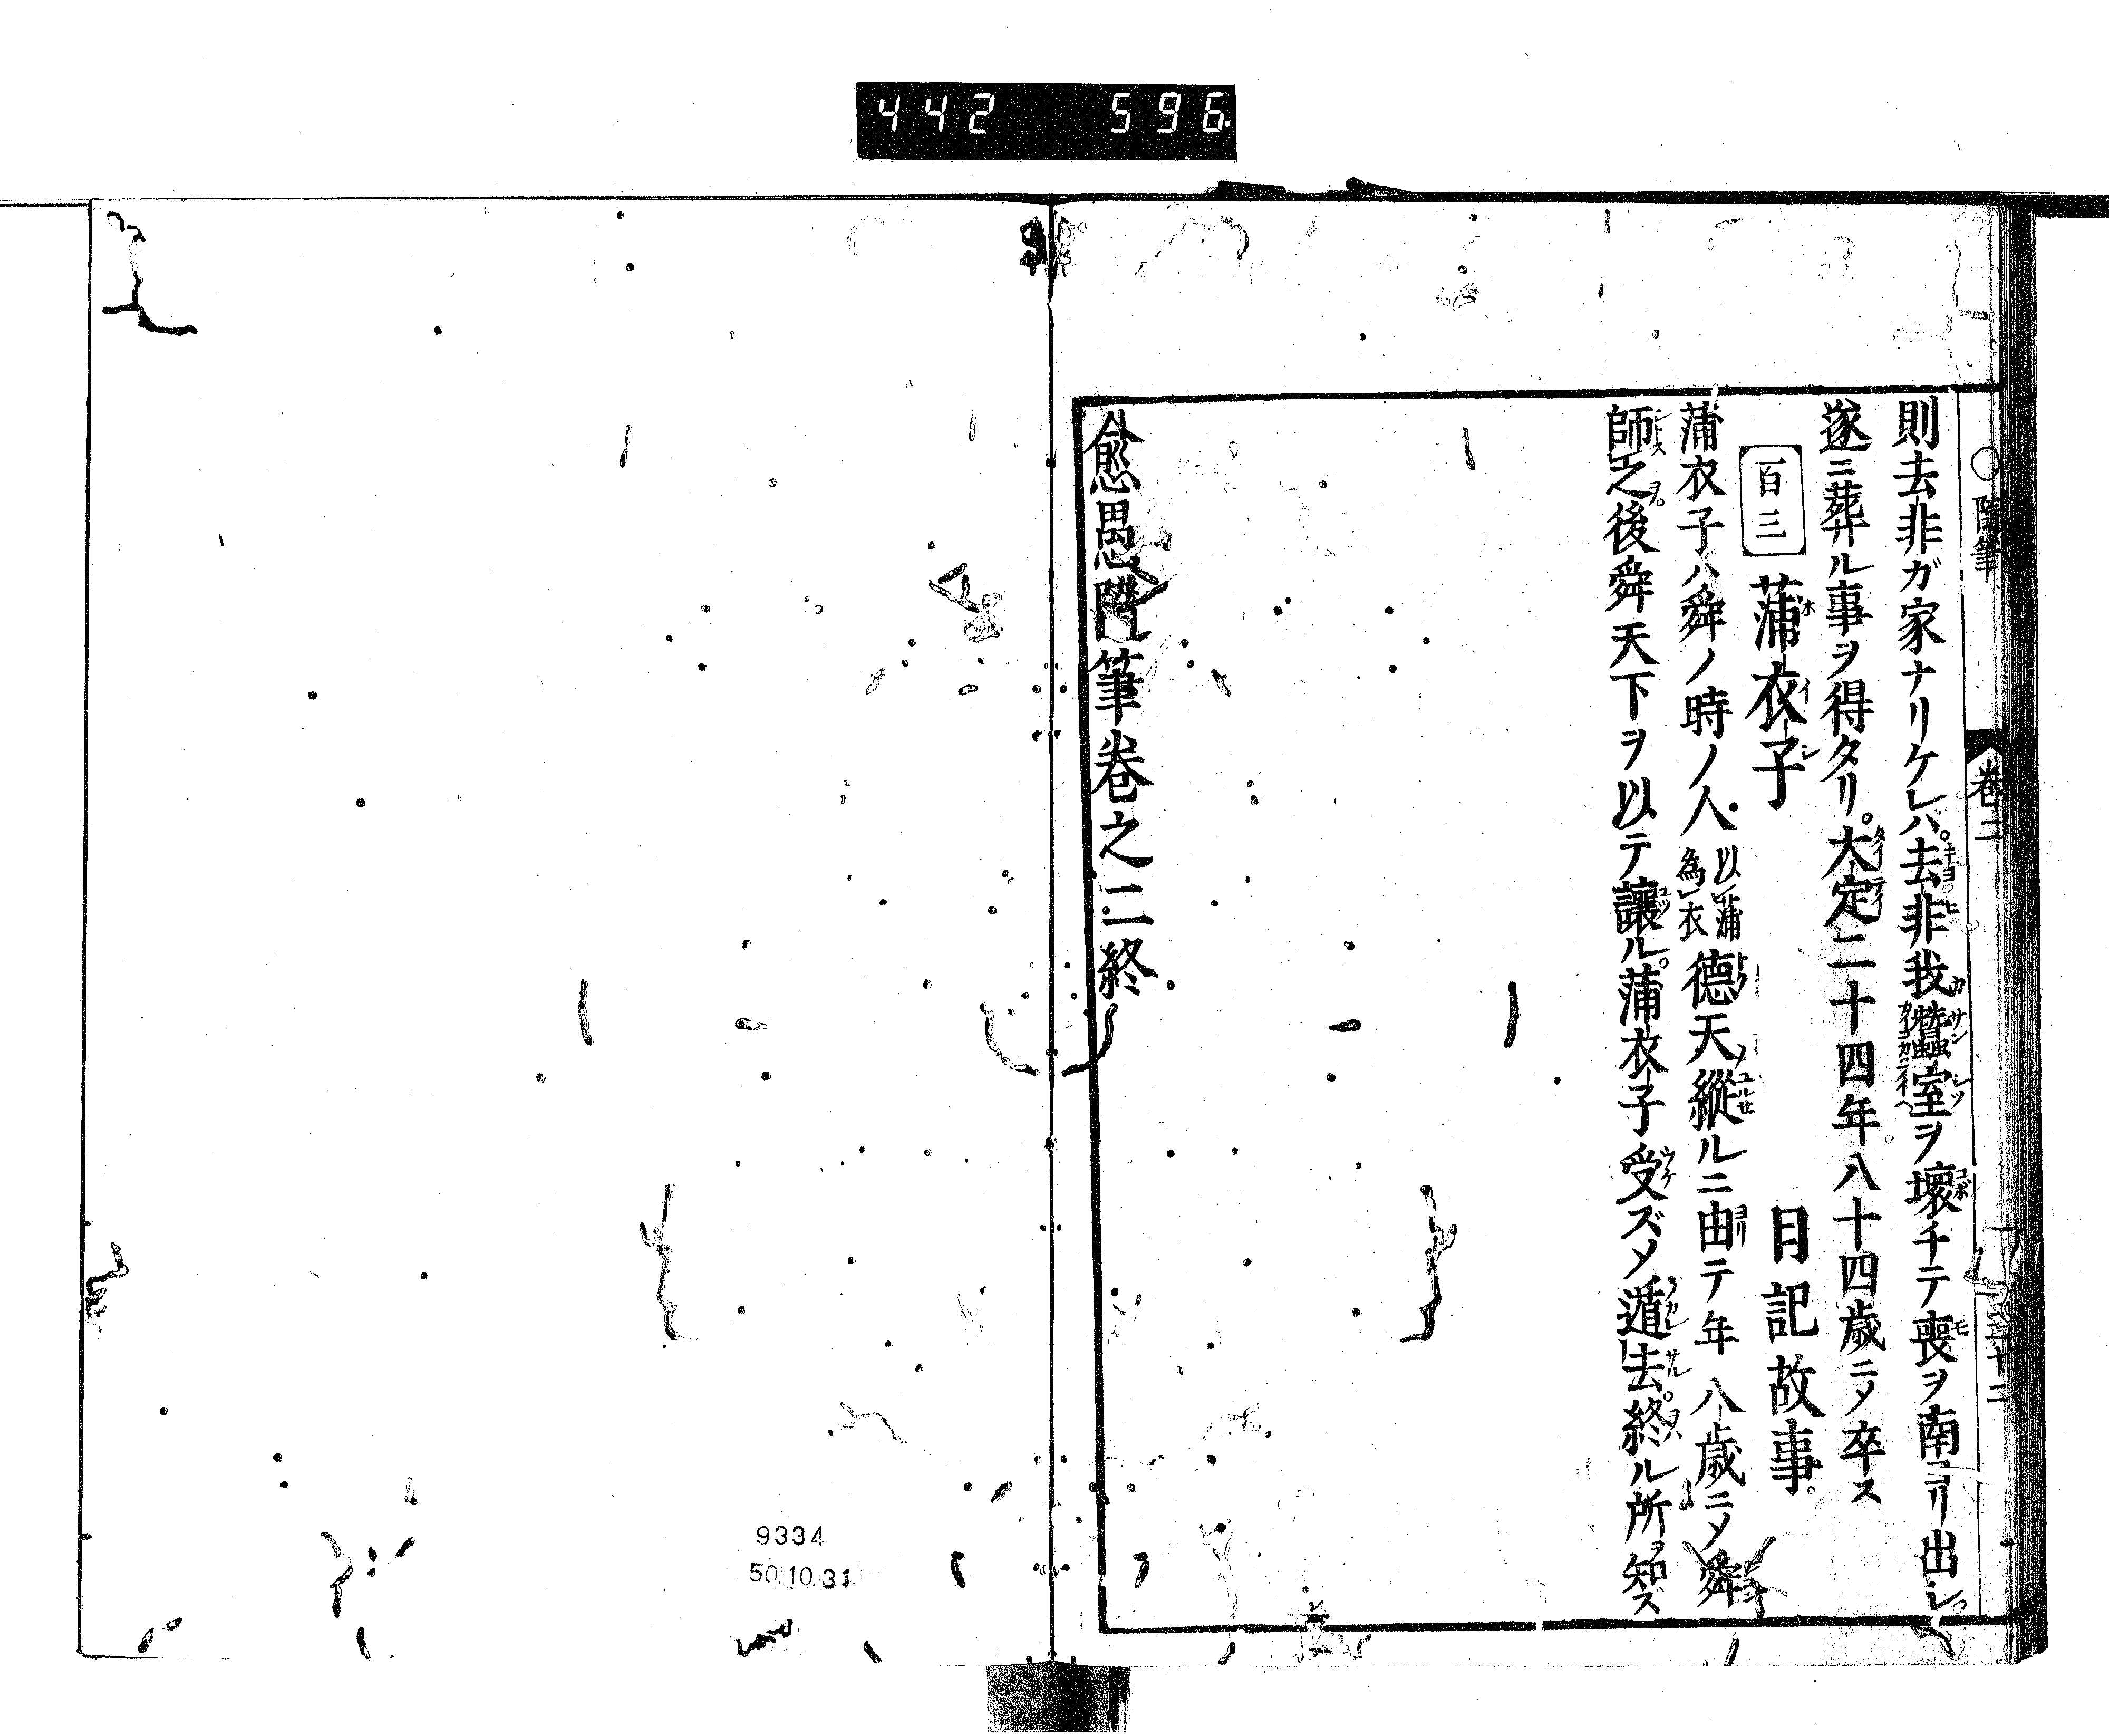 442 596
○隨筆 巻二
則去非ガ家ナリケレバ。去非我蠶室ヲ壞チテ喪ヲ南ヨリ出シ
遂ニ葬ル事ヲ得タリ。大定二十四年八十四歳ニメ卒ス
百三 蒲衣子 日記故事。
蒲衣子ハ舜ノ時ノ人 以蒲為衣 德天縱ルニ由テ年八歳ニメ舜
師之後舜天下ヲ以テ讓ル。蒲衣子受ズメ遁去終ル所ヲ知ズ
愈愚隨筆巻之二終
9334
50.10.31